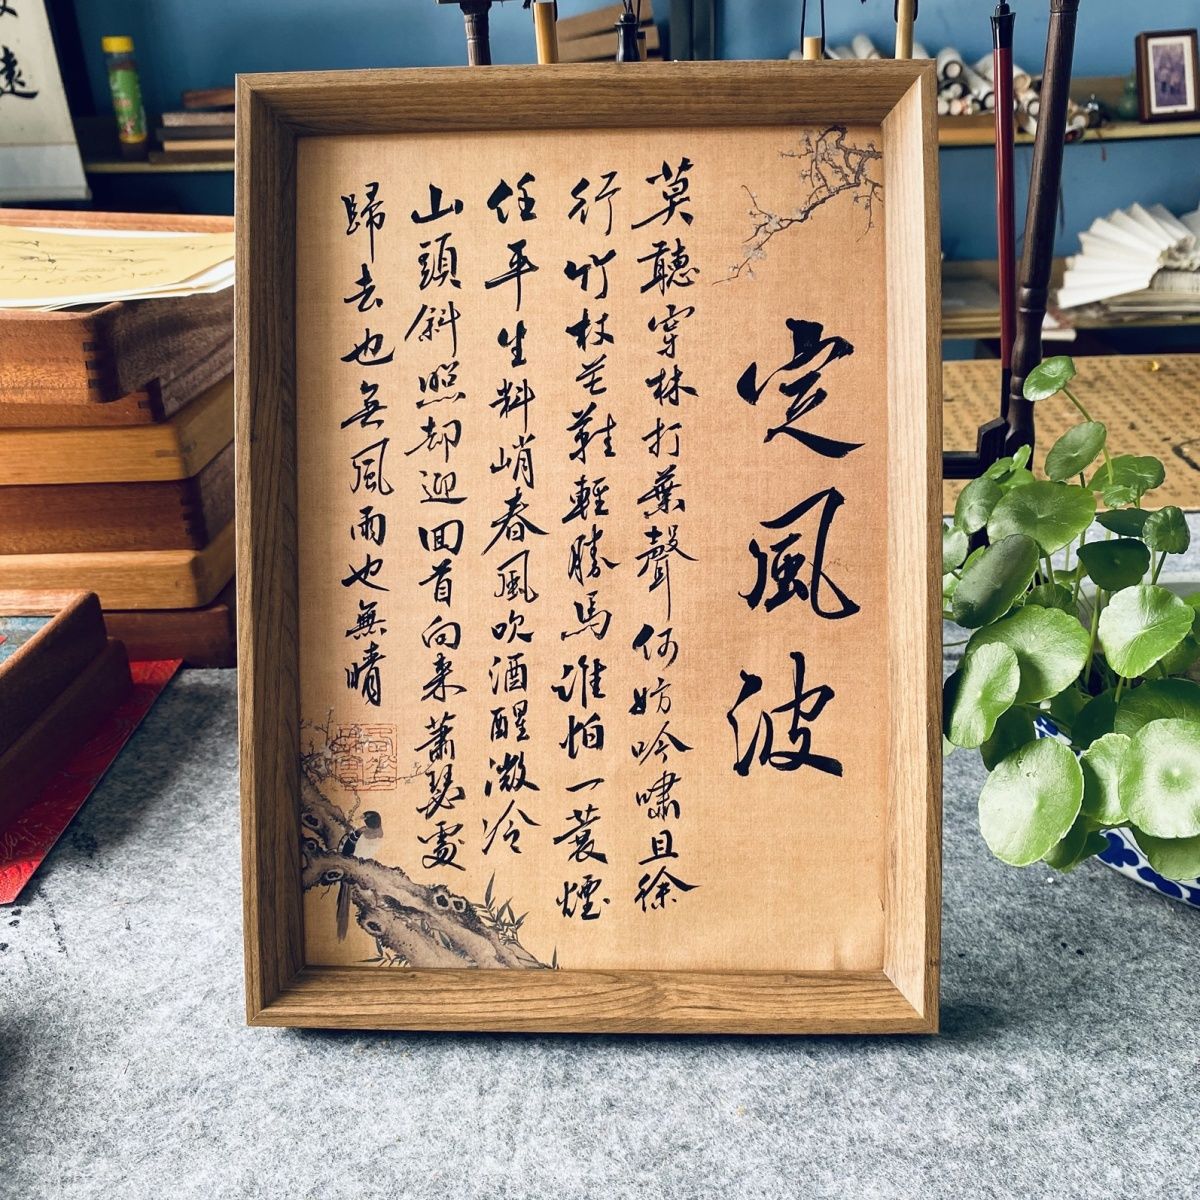 定風波
莫聽穿林打葉聲何妨吟嘯且徐
行竹杖芒鞋輕勝馬誰怕一蓑煙
任平生料峭春風吹酒醒微冷
山頭斜照却迎回首向來蕭瑟處
歸去也無風雨也無晴
遠